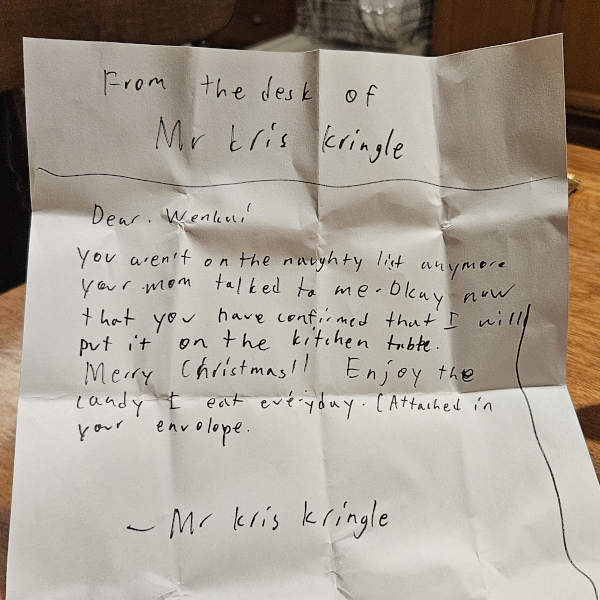 From the desk of
Mr kris kringle
Dear. Wenkui
you aren't on the naughty list anymore
your mom talked to me. Okay now
that you have confirmed that I will
put it on the kitchen table.
Merry Christmas!! Enjoy the
candy I eat everyday. (Attached in
your envolope.
– Mr kris kringle